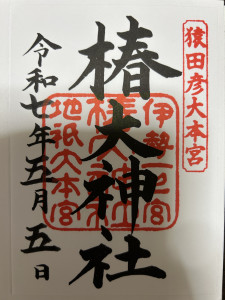 猿田彦大本宮
椿大神社
伊勢一之宮
椿大神社
地祇大本宮
令和七年五月五日